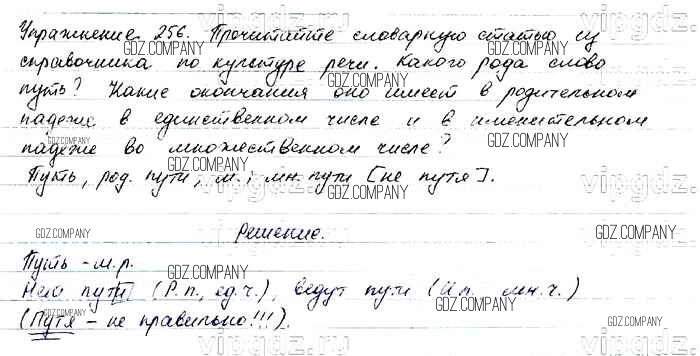 Упражнение 256. Прочитайте словарную статью из
справочника по культуре речи. Какого рода слово
путь? Какие окончания оно имеет в родительном
падеже в единственном числе и в именительном
падеже во множественном числе?
Путь, род. пути, м.; мн. пути [не путя].
Решение.
Путь - м.р.
Нет пути (Р.п., ед.ч.), ведут пути (И.п. мн.ч.)
(Путя - не правильно!!!).
vipgdz.ru
GDZ.COMPANY